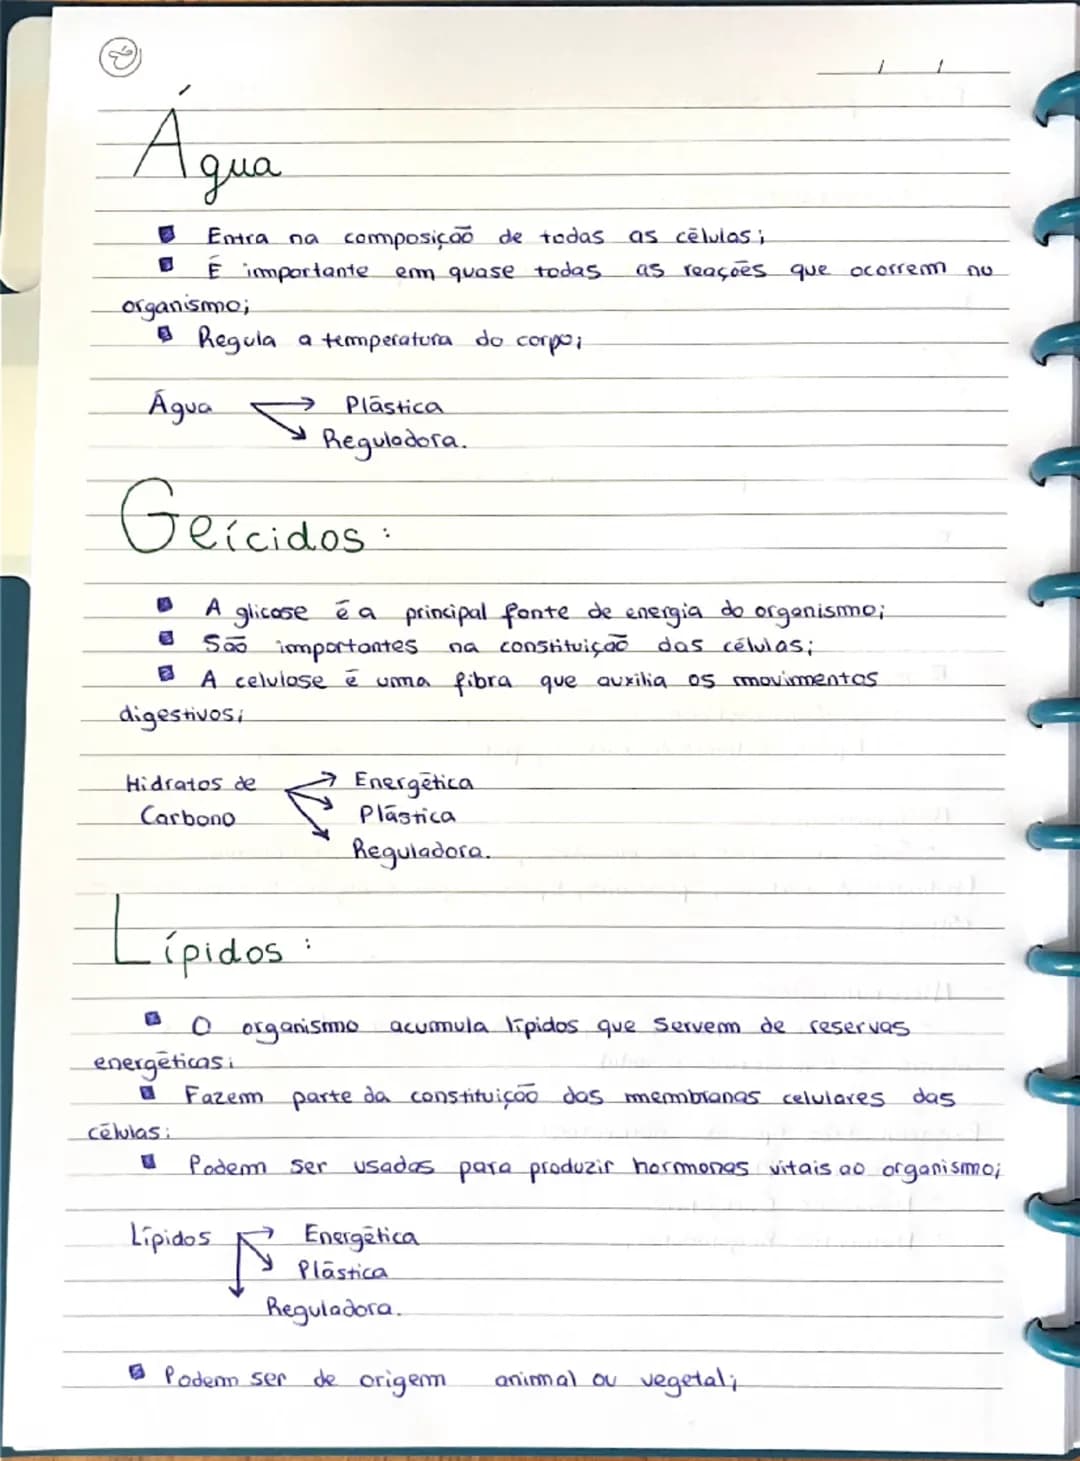 Água
Entra na composição de todas as células;
É importante em quase todas as reações que ocorrem no
organismo;
Regula a temperatura do corpo;
Água → Plástica
Reguladora.
Geícidos:
A glicose é a principal fonte de energia do organismo;
São importantes na constituição das células;
A celulose é uma fibra que auxilia os movimentos
digestivos;
Hidratos de → Energética
Carbono Plástica
Reguladora.
Lípidos:
O organismo acumula lípidos que servem de reservas
energéticas;
Fazem parte da constituição das membranas celulares das
células;
Podem ser usadas para produzir hormonas vitais ao organismo;
Lípidos → Energética
Plástica
Reguladora.
Podem ser de origem animal ou vegetal;